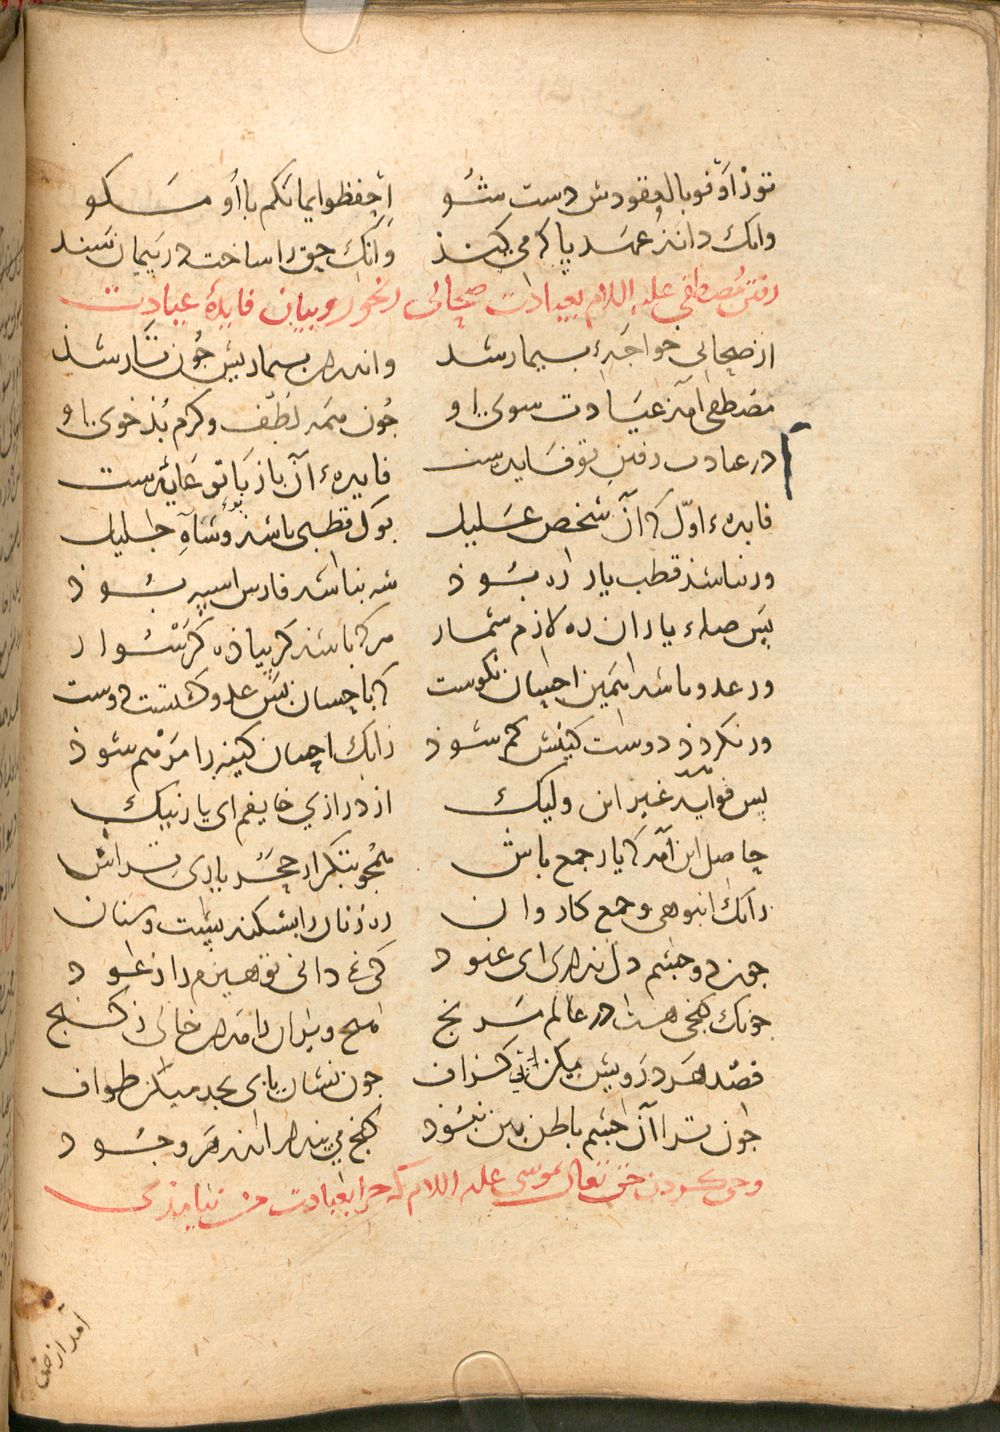 تو ز اوفوا بالعقودش دست شو احفظوا ایمانکم با او مگو
وانک داند عهد با که می‌کند وانک حق را ساخت در پیمان سند
رفتن مصطفی علیه السلام بعیادت صحابی رنجور و بیان فایدهٔ عیادت
از صحابی خواجهٔ بیمار شد واندران بیماریش چون تار شد
مصطفی آمد عیادت سوی او چون همه لطف و کرم بذ خوی او
در عیادت رفتن تو فایدست فایدهٔ آن باز با تو عایدست
فایدهٔ اول که آن شخص علیل بوک قطبی باشد و شاه جلیل
ور نباشد قطب یار ره بوذ شه نباشد فارس اسپه بوذ
پس صلهٔ یاران ره لازم شمار هر که باشد گر پیاذه گر سوار
ور عدو باشد همین احسان نکوست که باحسان بس عدو گشتست دوست
ور نگردذ دوست کینش کم شوذ زانک احسان کینه را مرهم شوذ
بس فواید هست غیر این ولیک از درازی خایفم ای یار نیک
حاصل این آمد که یار جمع باش همچو بتگر از حجر یاری تراش
زانک انبوهی و جمع کاروان ره‌زنان را بشکند پشت و سنان
چون دو چشم دل نداری ای عنود که نمی‌دانی تو هیزم را ز عود
چونک گنجی هست در عالم مرنج هیچ ویران را مدان خالی ز گنج
قصد هر درویش می‌کن از گزاف چون نشان یابی بجد می‌کن طواف
چون ترا آن چشم باطن بین نبوذ گنج می‌پندار اندر هر وجود
وحی کردن حق تعالی بموسی علیه السلام که چرا بعیادت من نیامذی
آمد از حق